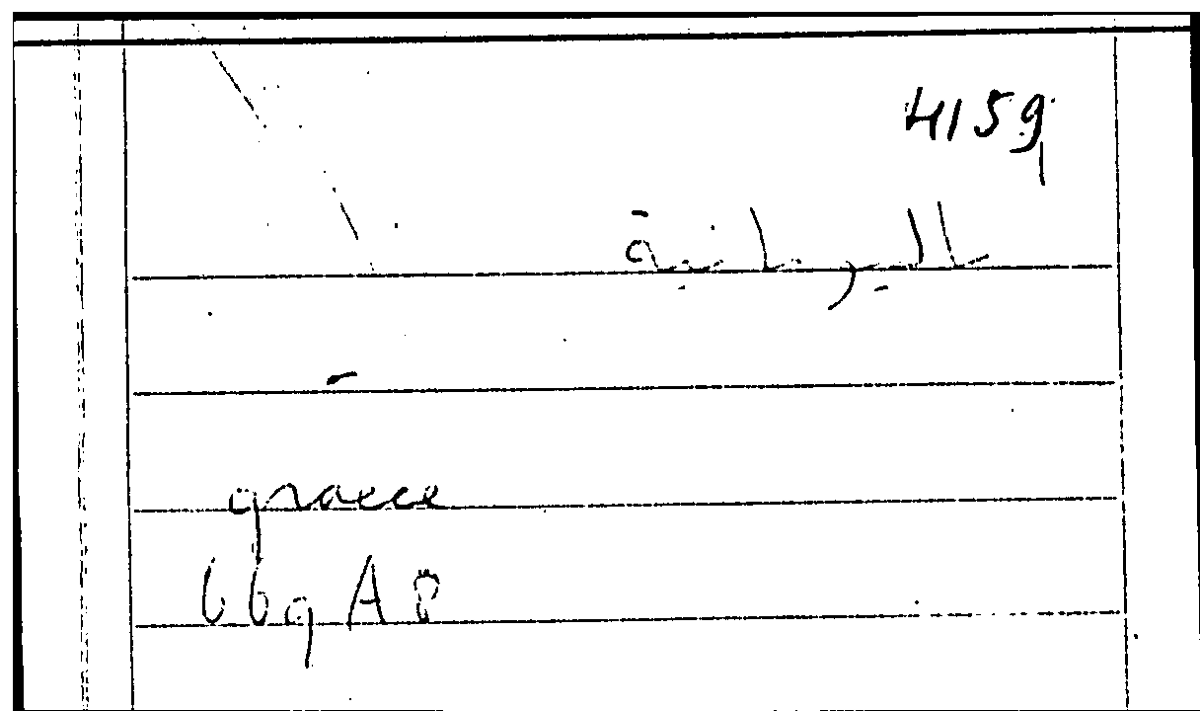 4159
باليونانية
graece
669 A 8